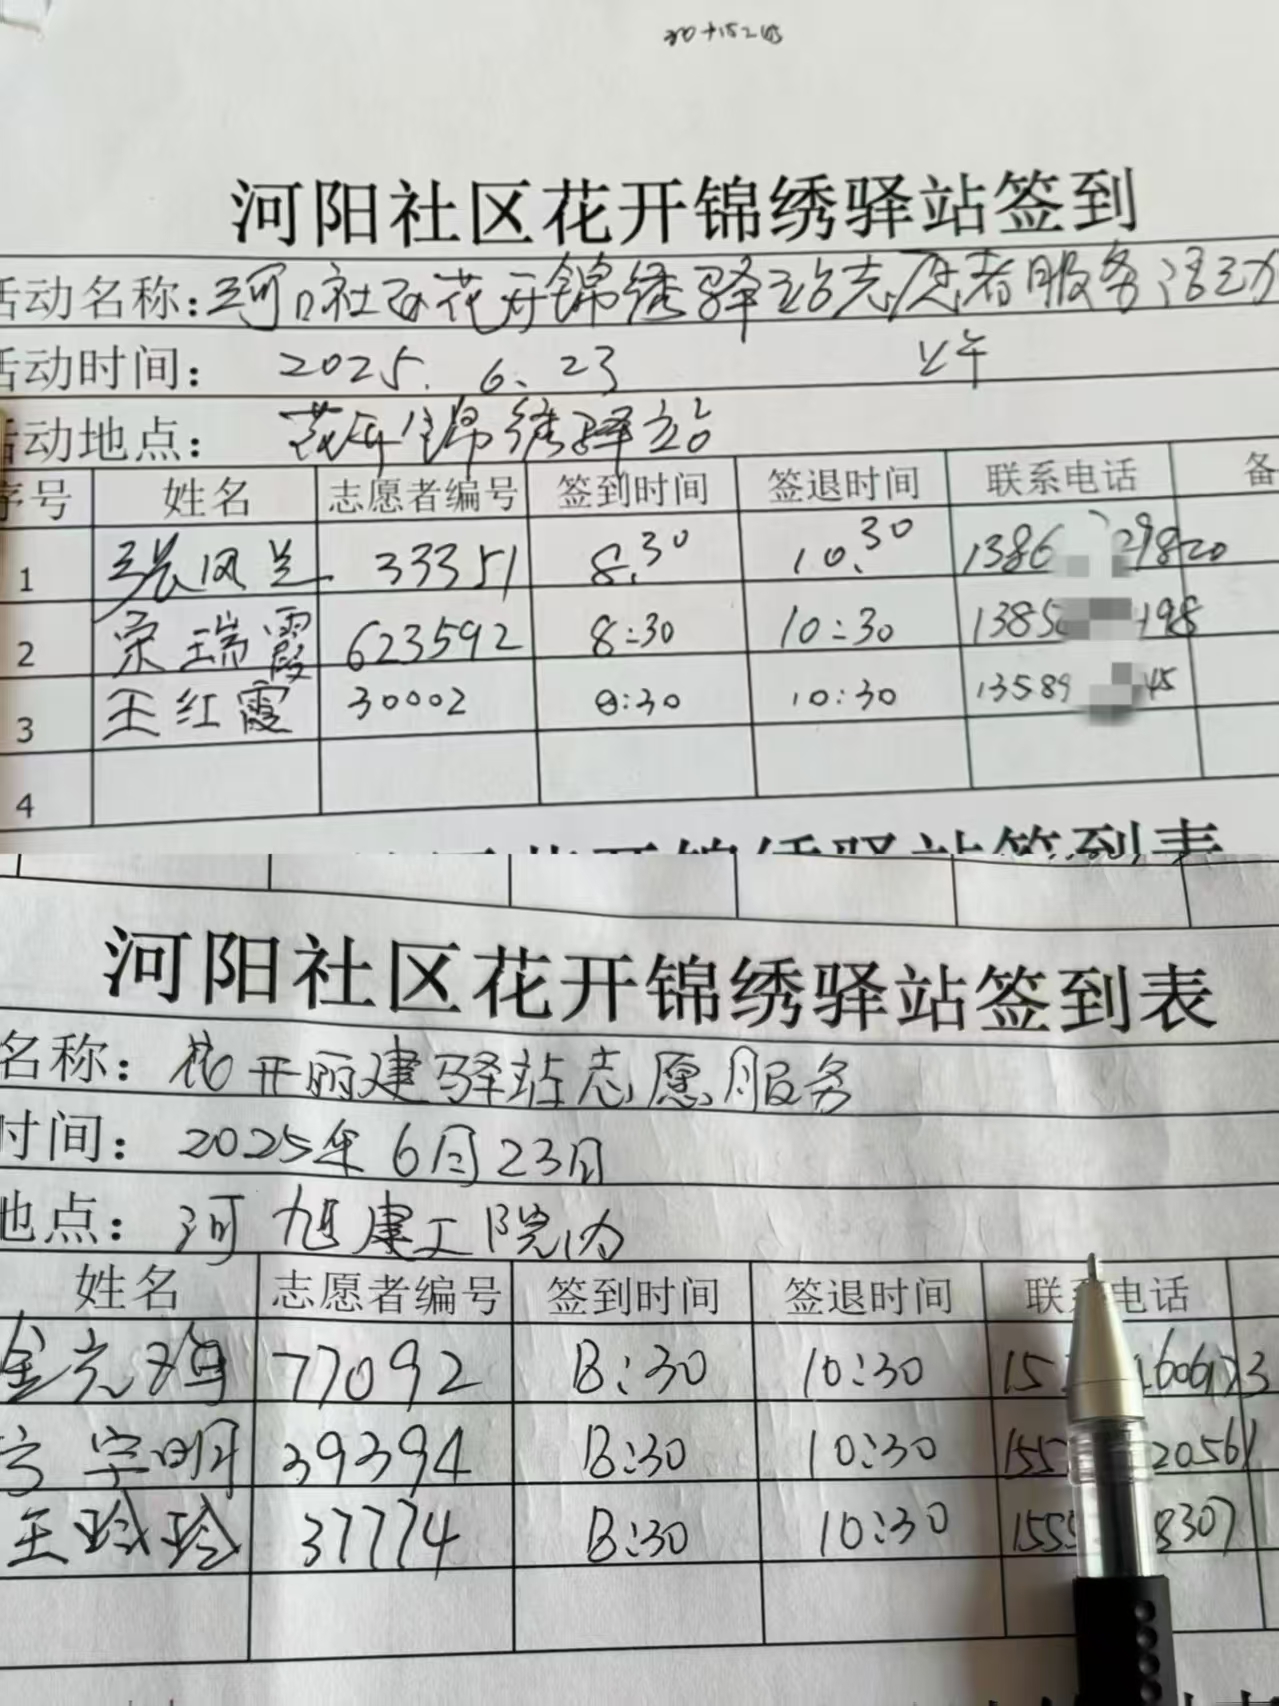 河阳社区花开锦绣驿站签到
活动名称：河阳社区花开锦绣驿站志愿者服务活动
活动时间： 2025. 6. 23 上午
活动地点： 花开锦绣驿站
序号 姓名 志愿者编号 签到时间 签退时间 联系电话 备
1 张凤兰 33351 8.30 10.30 1386 29820
2 宋瑞霞 623592 8:30 10:30 1385 198
3 王红霞 30002 8:30 10:30 13589 45
4
河阳社区花开锦绣驿站签到表
名称：花开丽建驿站志愿服务
时间：2025年6月23日
地点：河旭建工院内
姓名 志愿者编号 签到时间 签退时间 联系电话
77092 8:30 10:30 15 1606173
39394 8:30 10:30 155 20561
王玲玲 37774 8:30 10:30 1555 8307